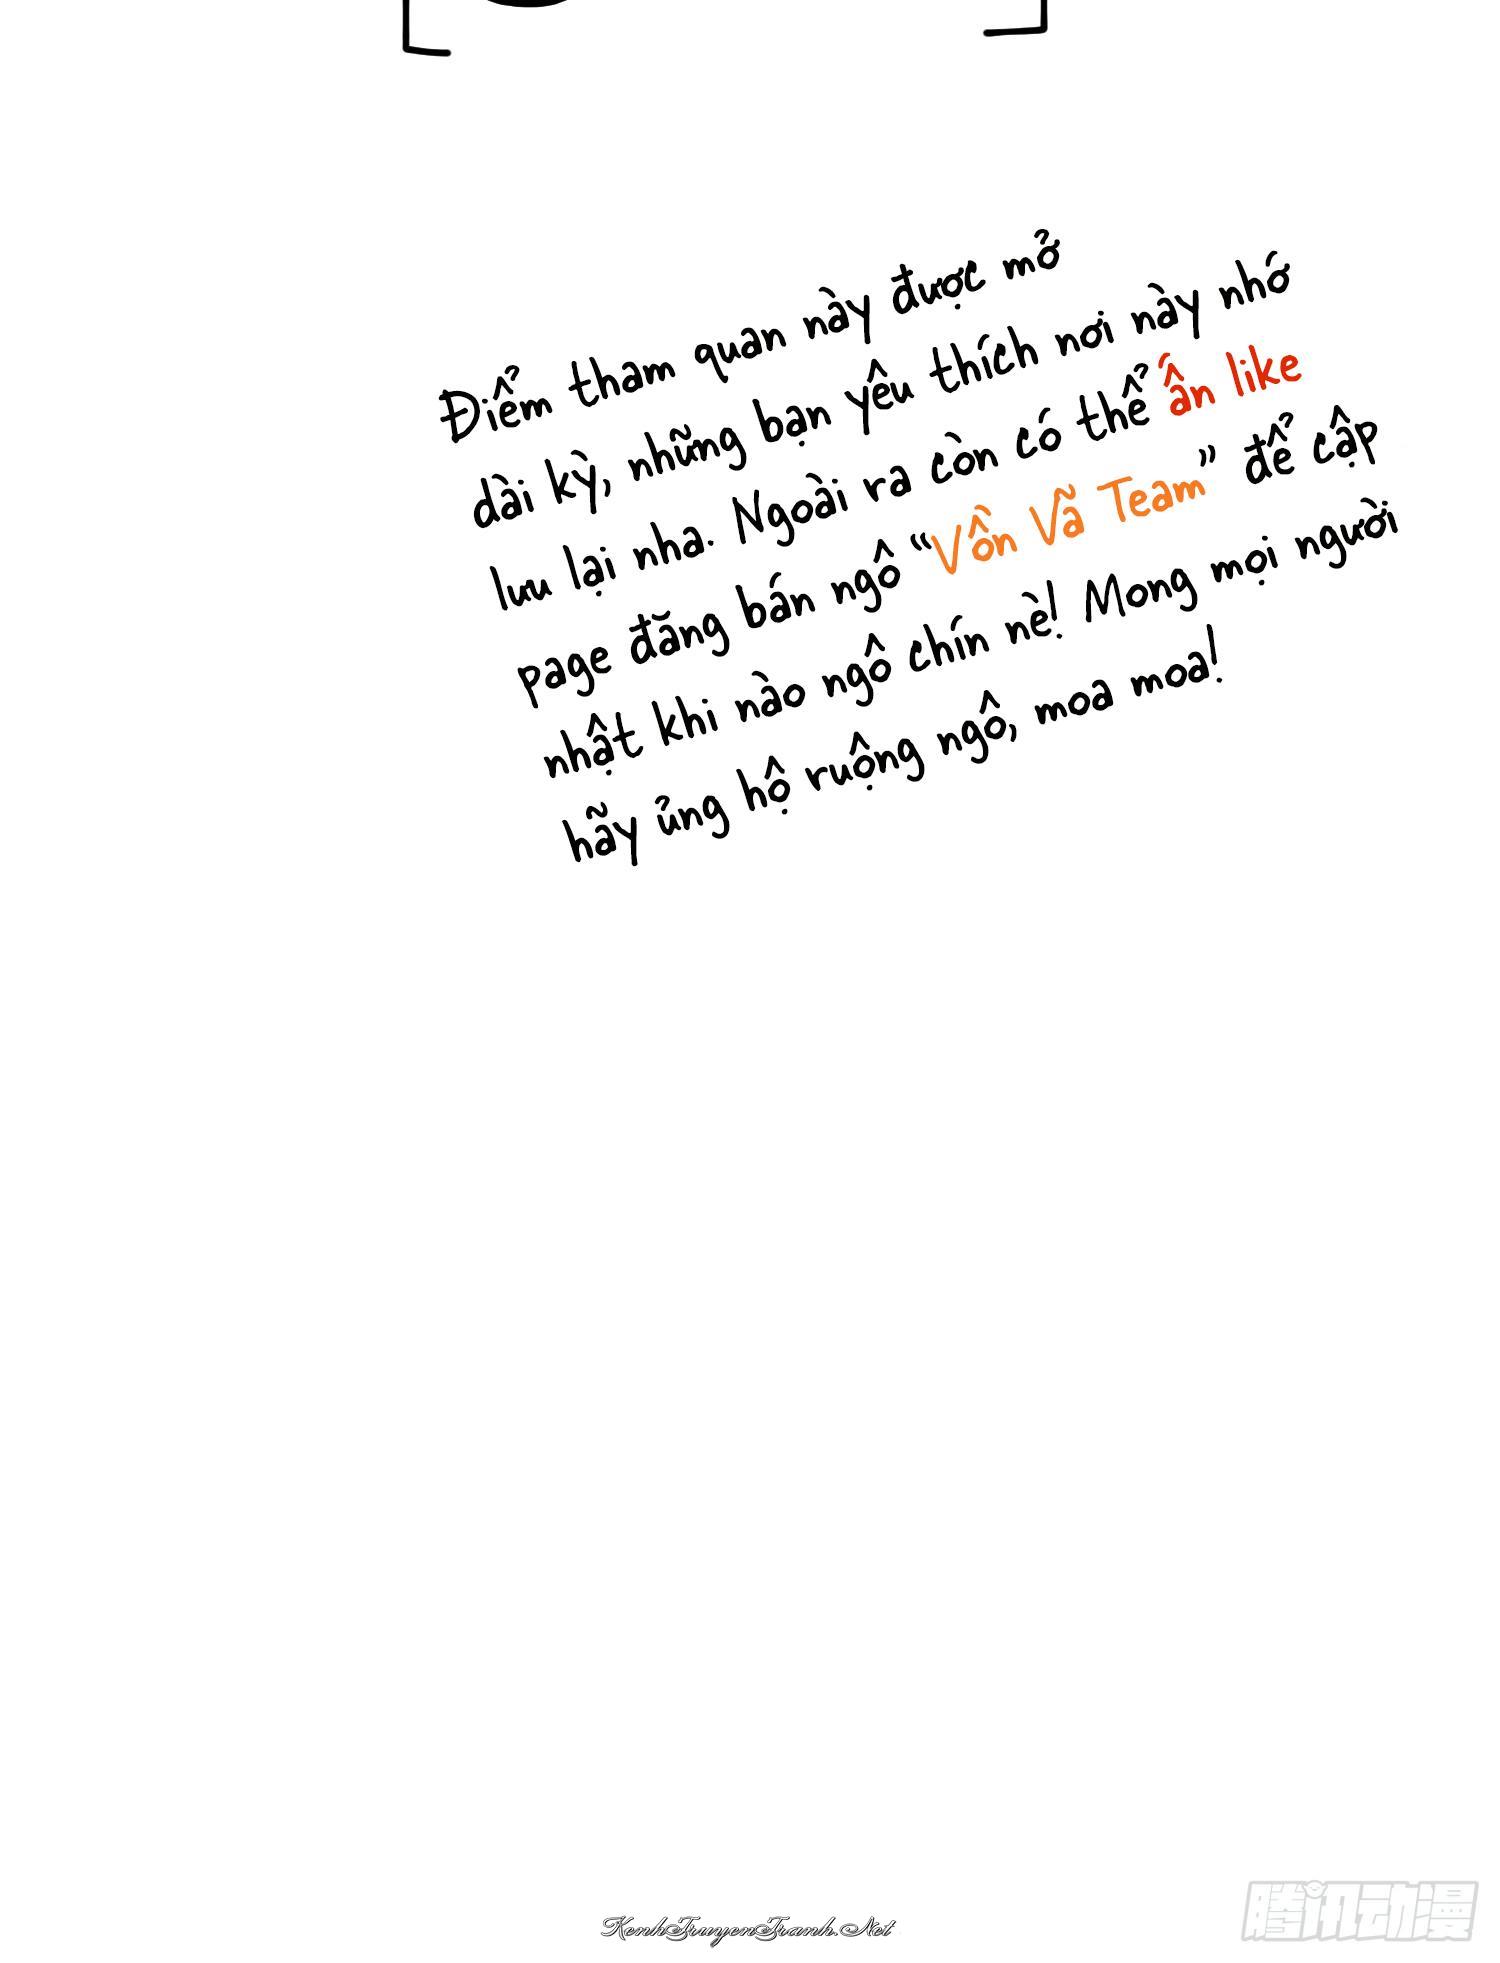 Điểm tham quan này được mở
dài kỳ, những bạn yêu thích nơi này nhớ
lưu lại nha. Ngoài ra còn có thể ấn like
page đăng bán ngô “Vồn Vã Team” để cập
nhật khi nào ngô chín nè! Mong mọi người
hãy ủng hộ ruộng ngô, moa moa!
KenhTruyenTranh.Net
腾讯动漫